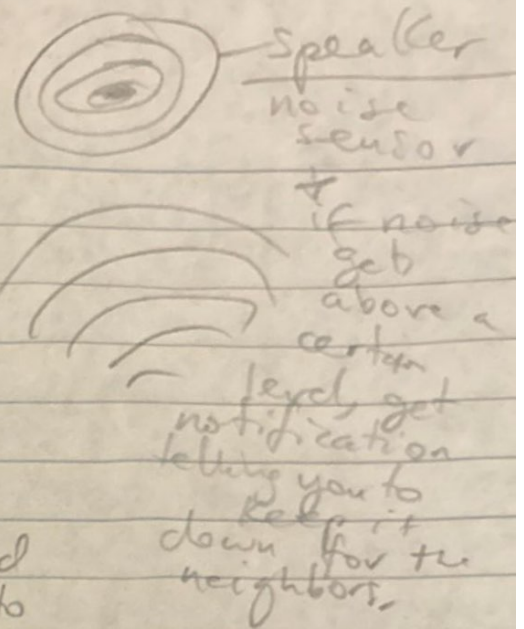 speaker
noise
sensor
if noise
gets
above a
certain
level, get
notification
telling you to
keep it
down for the
neighbors.
to